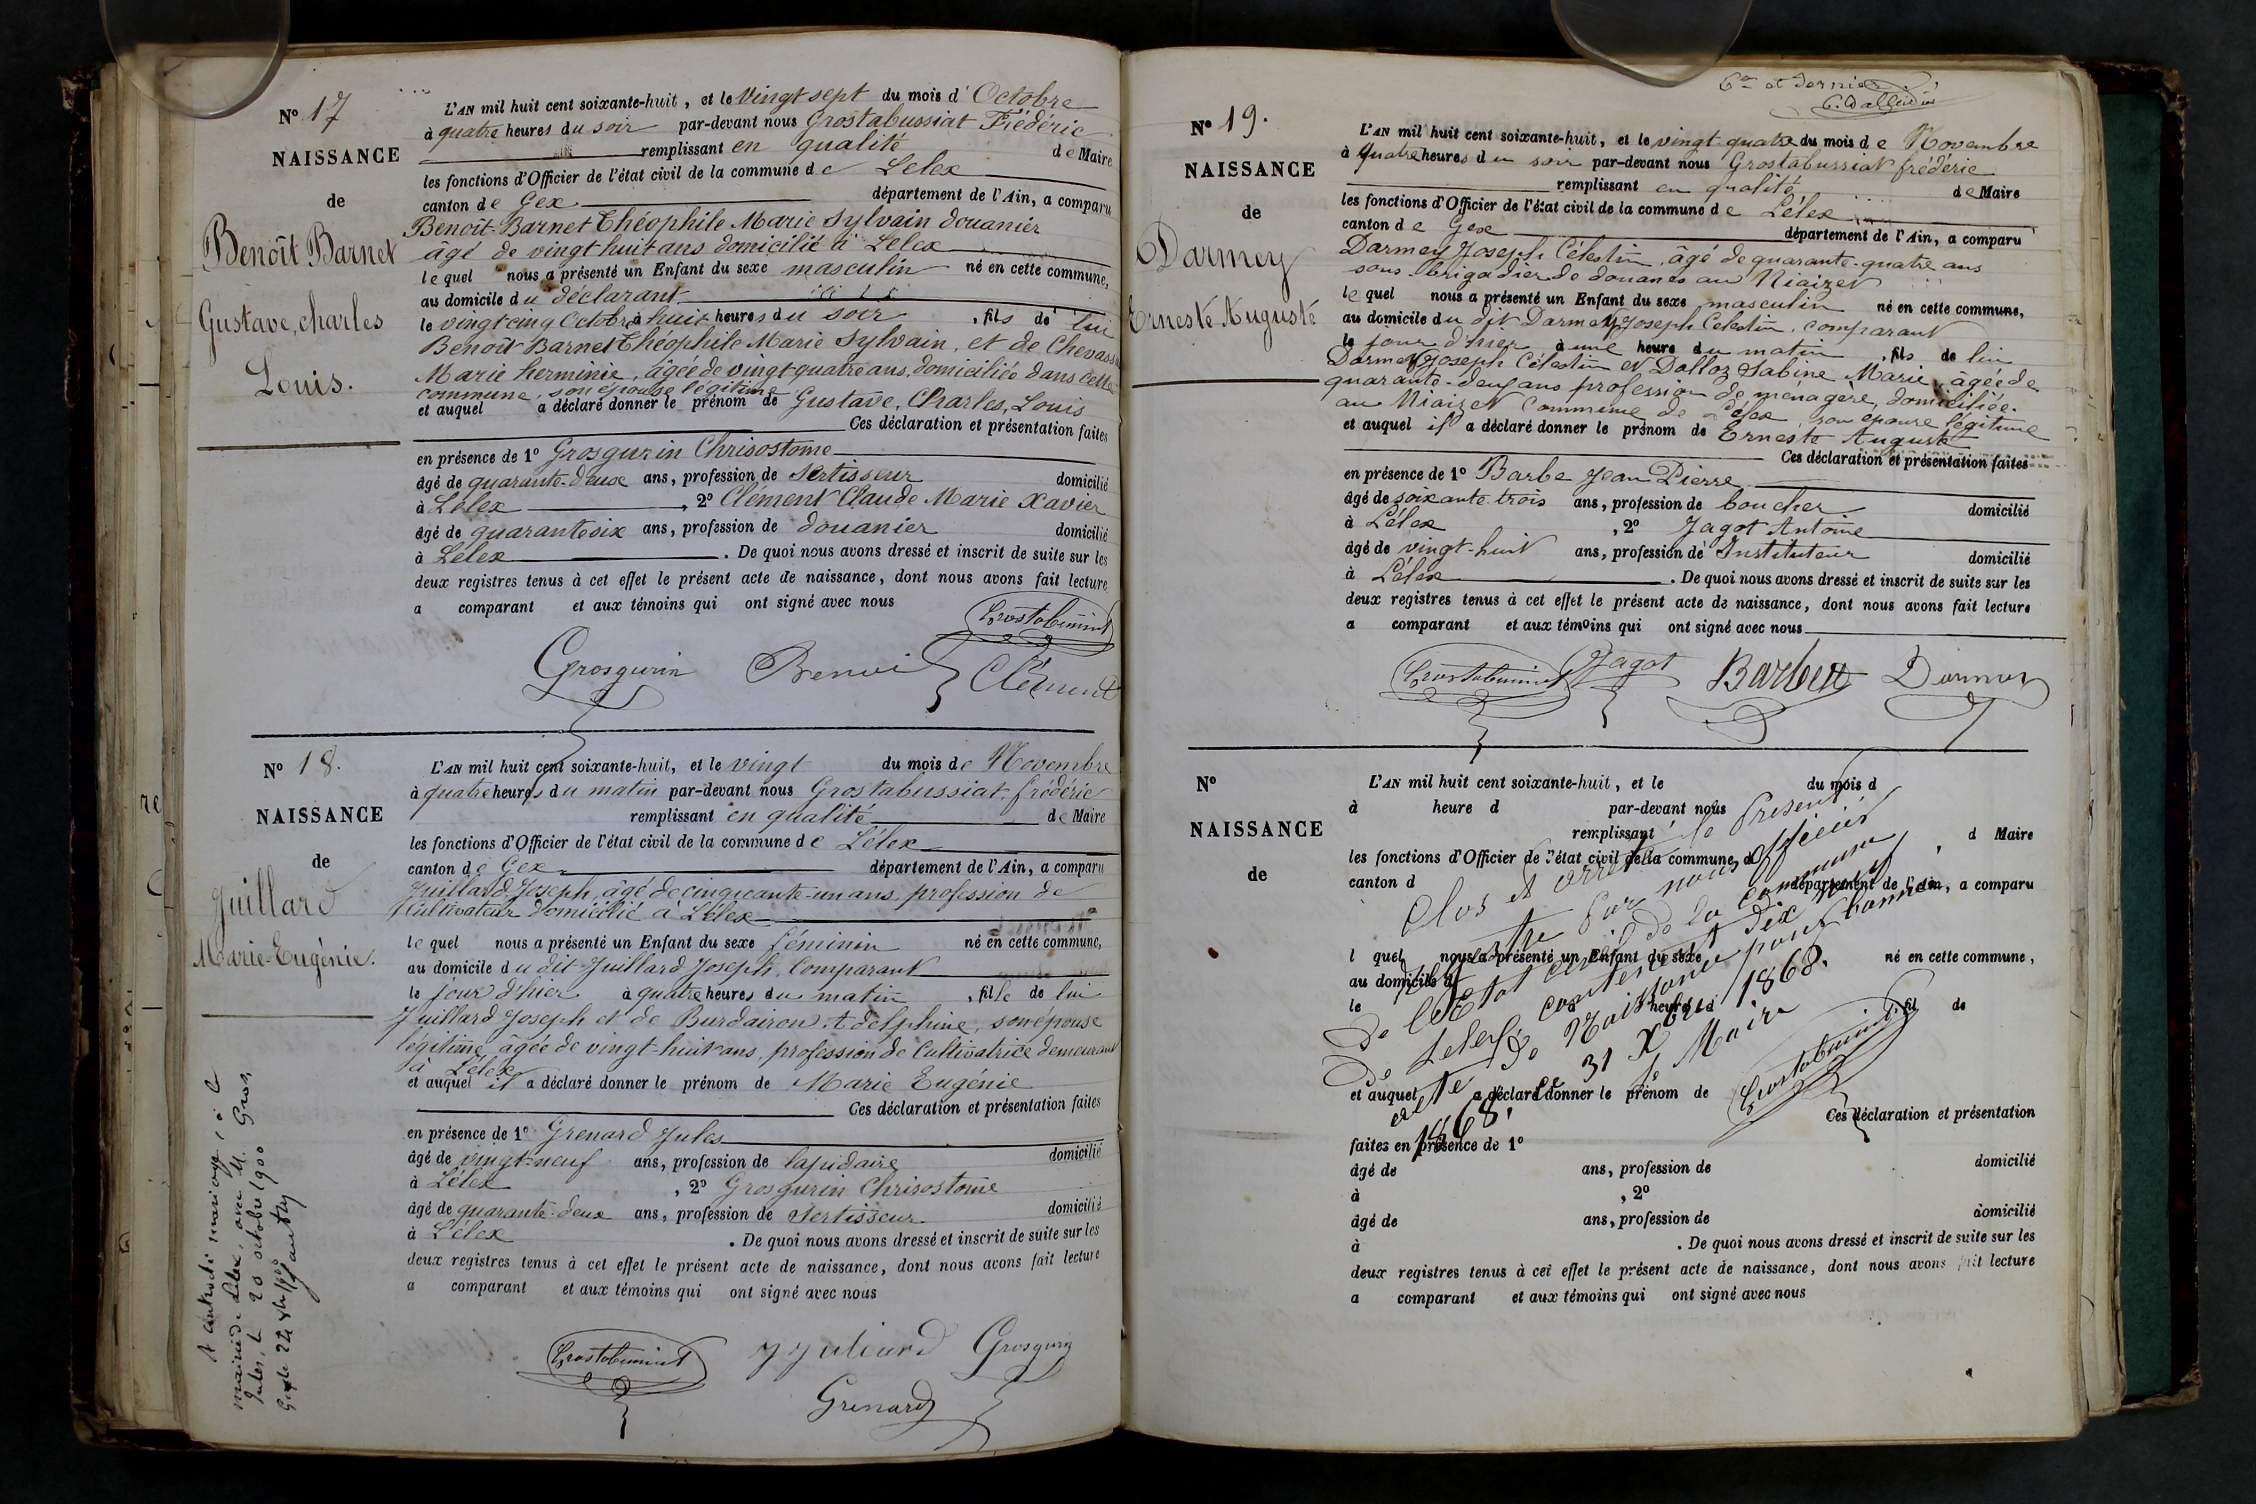 N° 17
NAISSANCE
de
Benoît Barnet
Gustave, charles
Louis.
L'AN mil huit cent soixante-huit, et le Vingt sept du mois d' Octobre
à quatre heures du soir par-devant nous Grostabussiat Frédéric
remplissant en qualité de Maire
les fonctions d'Officier de l'état civil de la commune de Lelex
canton de Gex département de l'Ain, a comparu
Benoit-Barnet Théophile Marie Sylvain douanier
âgé de vingt huit ans domicilié à Lelex
lequel nous a présenté un Enfant du sexe masculin né en cette commune,
au domicile du déclarant
le vingt cinq Octobre à huit heures du soir, fils de lui
Benoît Barnet Théophile Marie Sylvain, et de Chevassu
Marie herminie, âgée de vingt-quatre ans, domiciliée dans cette
commune, son épouse légitime
et auquel a déclaré donner le prénom de Gustave, Charles, Louis
Ces déclaration et présentation faites
en présence de 1° Grosgurin Chrisostome
âgé de quarante-deux ans, profession de Sertisseur domicilié
à Lélex, 2° Clément Claude Marie Xavier
âgé de quarante six ans, profession de douanier domicilié
à Lélex. De quoi nous avons dressé et inscrit de suite sur les
deux registres tenus à cet effet le présent acte de naissance, dont nous avons fait lecture
a comparant et aux témoins qui ont signé avec nous
Grostabussiat
Grosgurin Benoi Clément
N° 18.
NAISSANCE
de
Juillard
Marie-Eugénie.
L'AN mil huit cent soixante-huit, et le vingt du mois de Novembre
à quatre heures du matin par-devant nous Grostabussiat frédéric
remplissant en qualité de Maire
les fonctions d'Officier de l'état civil de la commune de Lélex
canton de Gex département de l'Ain, a comparu
Juillard Joseph, âgé de cinquante-un ans, profession de
Cultivateur domicilié à Lélex
lequel nous a présenté un Enfant du sexe féminin né en cette commune,
au domicile du dit Juillard Joseph, Comparant
le jour d'hier à quatre heures du matin, fille de lui
Juillard Joseph et de Burdairon Adelphine, son épouse
légitime, âgée de vingt-huit ans, profession de Cultivatrice demeurant
à Lélex
et auquel il a déclaré donner le prénom de Marie Eugénie
Ces déclaration et présentation faites
en présence de 1° Grenard Jules
âgé de vingt-neuf ans, profession de lapidaire domicilié
à Lélex, 2° Grosgurin Chrisostome
âgé de quarante-deux ans, profession de Sertisseur domicilié
à Lélex. De quoi nous avons dressé et inscrit de suite sur les
deux registres tenus à cet effet le présent acte de naissance, dont nous avons fait lecture
a comparant et aux témoins qui ont signé avec nous
Grostabussiat Grosgurin
Grenard
A contracté mariage à la
mairie de Lélex, avec M. Gros,
Jules, le 20 octobre 1900
N° 19.
NAISSANCE
de
Darmey
Erneste Auguste
6e et dernier
L'AN mil huit cent soixante-huit, et le vingt-quatre du mois de Novembre
à quatre heures du soir par-devant nous Grostabussiat frédéric
remplissant en qualité de Maire
les fonctions d'Officier de l'état civil de la commune de Lélex
canton de Gex département de l'Ain, a comparu
Darmey Joseph Célestin, âgé de quarante-quatre ans
sous-brigadier de douanes au Niaizet
lequel nous a présenté un Enfant du sexe masculin né en cette commune,
au domicile du dit Darmey Joseph Celestin, comparant
le jour d'hier à une heure du matin, fils de lui
Darmey Joseph Célestin et Dalloz Sabine Marie, âgée de
quarante-deux ans profession de ménagère, domiciliée
au Niaizet Commune de Lélex, son épouse légitime
et auquel il a déclaré donner le prénom de Erneste Auguste
Ces déclaration et présentation faites
en présence de 1° Barbe Jean Pierre
âgé de soixante-trois ans, profession de boucher domicilié
à Lélex, 2° Jagot Antoine
âgé de vingt-huit ans, profession de Instituteur domicilié
à Lélex. De quoi nous avons dressé et inscrit de suite sur les
deux registres tenus à cet effet le présent acte de naissance, dont nous avons fait lecture
a comparant et aux témoins qui ont signé avec nous
Grostabussiat Jagot Barbe Darmey
N°
NAISSANCE
de
L'AN mil huit cent soixante-huit, et le du mois d
à heure d par-devant nous
remplissant d Maire
les fonctions d'Officier de l'état civil de la commune d
canton d département de l'Ain, a comparu
l quel nous a présenté un Enfant du sexe né en cette commune,
au domicile d
le à heure d, fil de
et auquel a déclaré donner le prénom de
Ces déclaration et présentation
faites en présence de 1°
âgé de ans, profession de domicilié
à, 2°
âgé de ans, profession de domicilié
à. De quoi nous avons dressé et inscrit de suite sur les
deux registres tenus à cet effet le présent acte de naissance, dont nous avons fait lecture
a comparant et aux témoins qui ont signé avec nous
Clos et arrêté le Présent
registre par nous officier
de l'Etat civil de la commune
de Lelex contenant dix neuf
acte de Naissance pour l'année
1868.
le 31 Xbre 1868.
le Maire
Grostabussiat